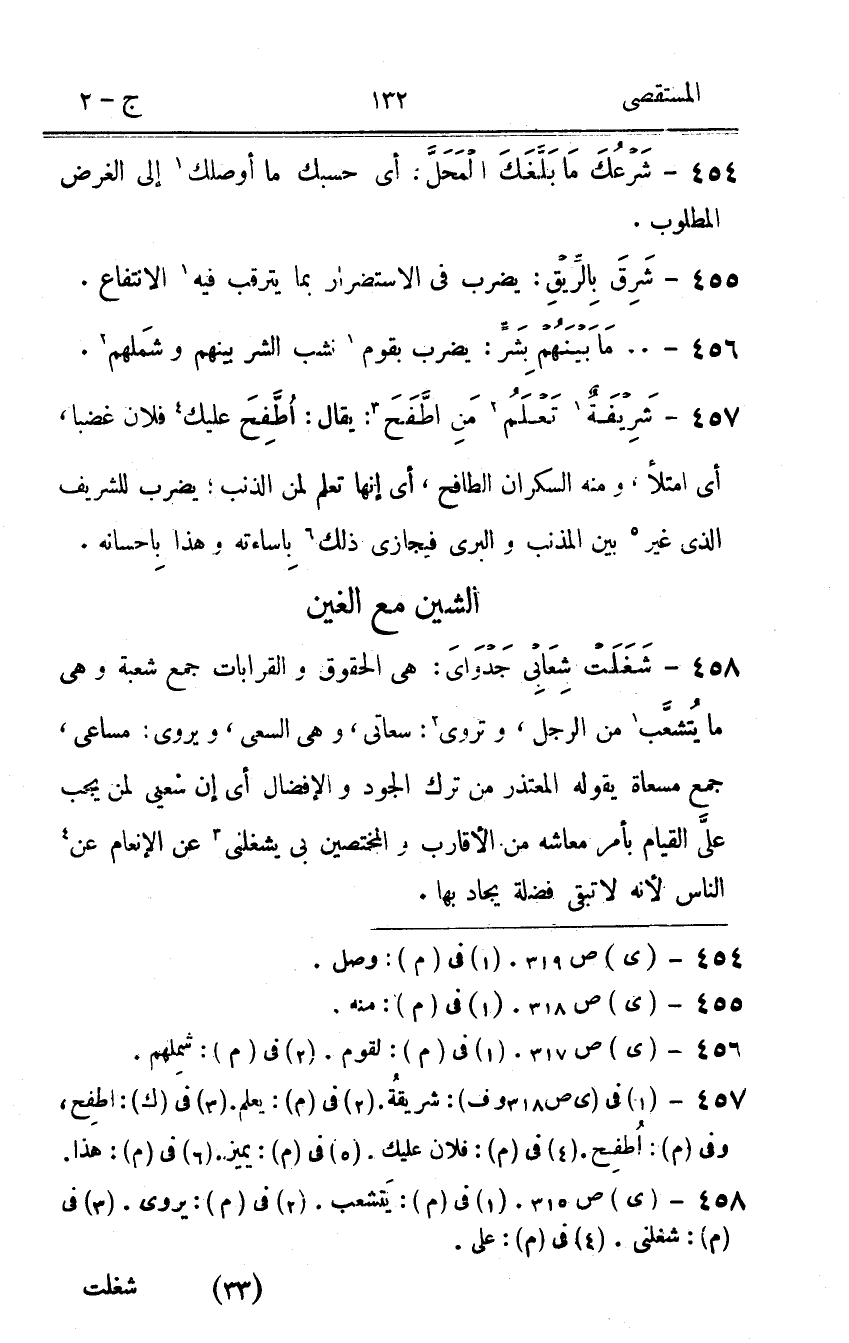 المستقصى ١٣٢ ج – ٢
٤٥٤ – شَرْعُكَ مَا بَلَّغَكَ الْمَحَلَّ : أى حسبك ما أوصلك ١ إلى الغرض
المطلوب .
٤٥٥ – شَرِقَ بِالرِّيْقِ : يضرب فى الاستضرار بما يترقب فيه ١ الانتفاع .
٤٥٦ – .. مَا بَيْنَهُمْ بِشَرٍّ : يضرب بقوم ١ نشب الشر بينهم و شَملهم ٢ .
٤٥٧ – شَرِيْفَةٌ ١ تَعْلَمُ ٢ مَنِ اطَّفَحَ ٣ : يقال : اُطَّفِحَ عليك ٤ فلان غضبا ،
أى امتلأ ، و منه السكران الطافح ، أى إنها تعلم لمن الذنب ؛ يضرب للشريف
الذى غير ٥ بين المذنب و البرى فيجازى ذلك ٦ بِاساءته و هذا بِاحسانه .
الشين مع الغين
٤٥٨ – شَغَلَتْ شِعَابِى جَدْوَاىَ : هى الحقوق و القرابات جمع شعبة و هى
ما يُتشعَّب ١ من الرجل ، و تروى ٢ : سعاتى ، و هى السعى ، و يروى : مساعى ،
جمع مسعاة يقوله المعتذر من ترك الجود و الإفضال أى إن شْعبي لمن يجب
علىَّ القيام بأمر معاشه من الأقارب و المختصين بى يشغلنى ٣ عن الإنعام عن ٤
الناس لأنه لا تبقى فضلة يجاد بها .
٤٥٤ – ( ى ) ص ٣١٩ . (١) فى ( م ) : وصل .
٤٥٥ – ( ى ) ص ٣١٨ . (١) فى ( م ) : منه .
٤٥٦ – ( ى ) ص ٣١٧ . (١) فى ( م ) : لقوم . (٢) فى ( م ) : شمِلهم .
٤٥٧ – (١) فى (ى ص ٣١٨ و ف) : شريقةُ . (٢) فى (م) : يعلم . (٣) فى (ك) : اطفِح ،
وفى (م) : اُطفِح . (٤) فى (م) : فلان عليك . (٥) فى (م) : يميز . (٦) فى (م) : هذا .
٤٥٨ – ( ى ) ص ٣١٥ . (١) فى ( م ) : يَتشعب . (٢) فى ( م ) : يروى . (٣) فى
(م) : شغلنى . (٤) فى (م) : على .
(٣٣) شغلت